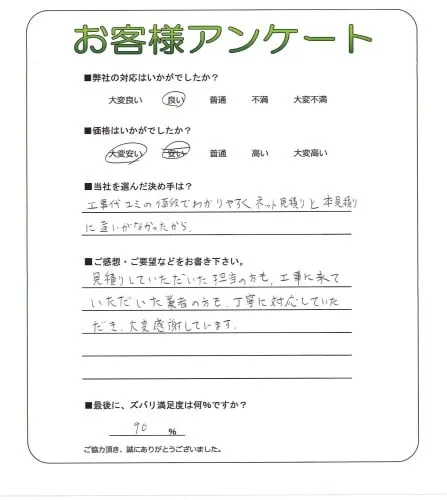 お客様アンケート
■弊社の対応はいかがでしたか?
大変良い 良い 普通 不満 大変不満
■価格はいかがでしたか?
大変安い 安い 普通 高い 大変高い
■当社を選んだ決め手は?
工事代コミの値段でわかりやすくネット見積りと本見積り
に違いがなかったから.
■ご感想・ご要望などをお書き下さい。
見積りしていただいた担当の方も、工事に来て
いただいた業者の方も、丁寧に対応していた
だき、大変感謝しています.
■最後に、ズバリ満足度は何%ですか?
90 %
ご協力頂き、誠にありがとうございました。